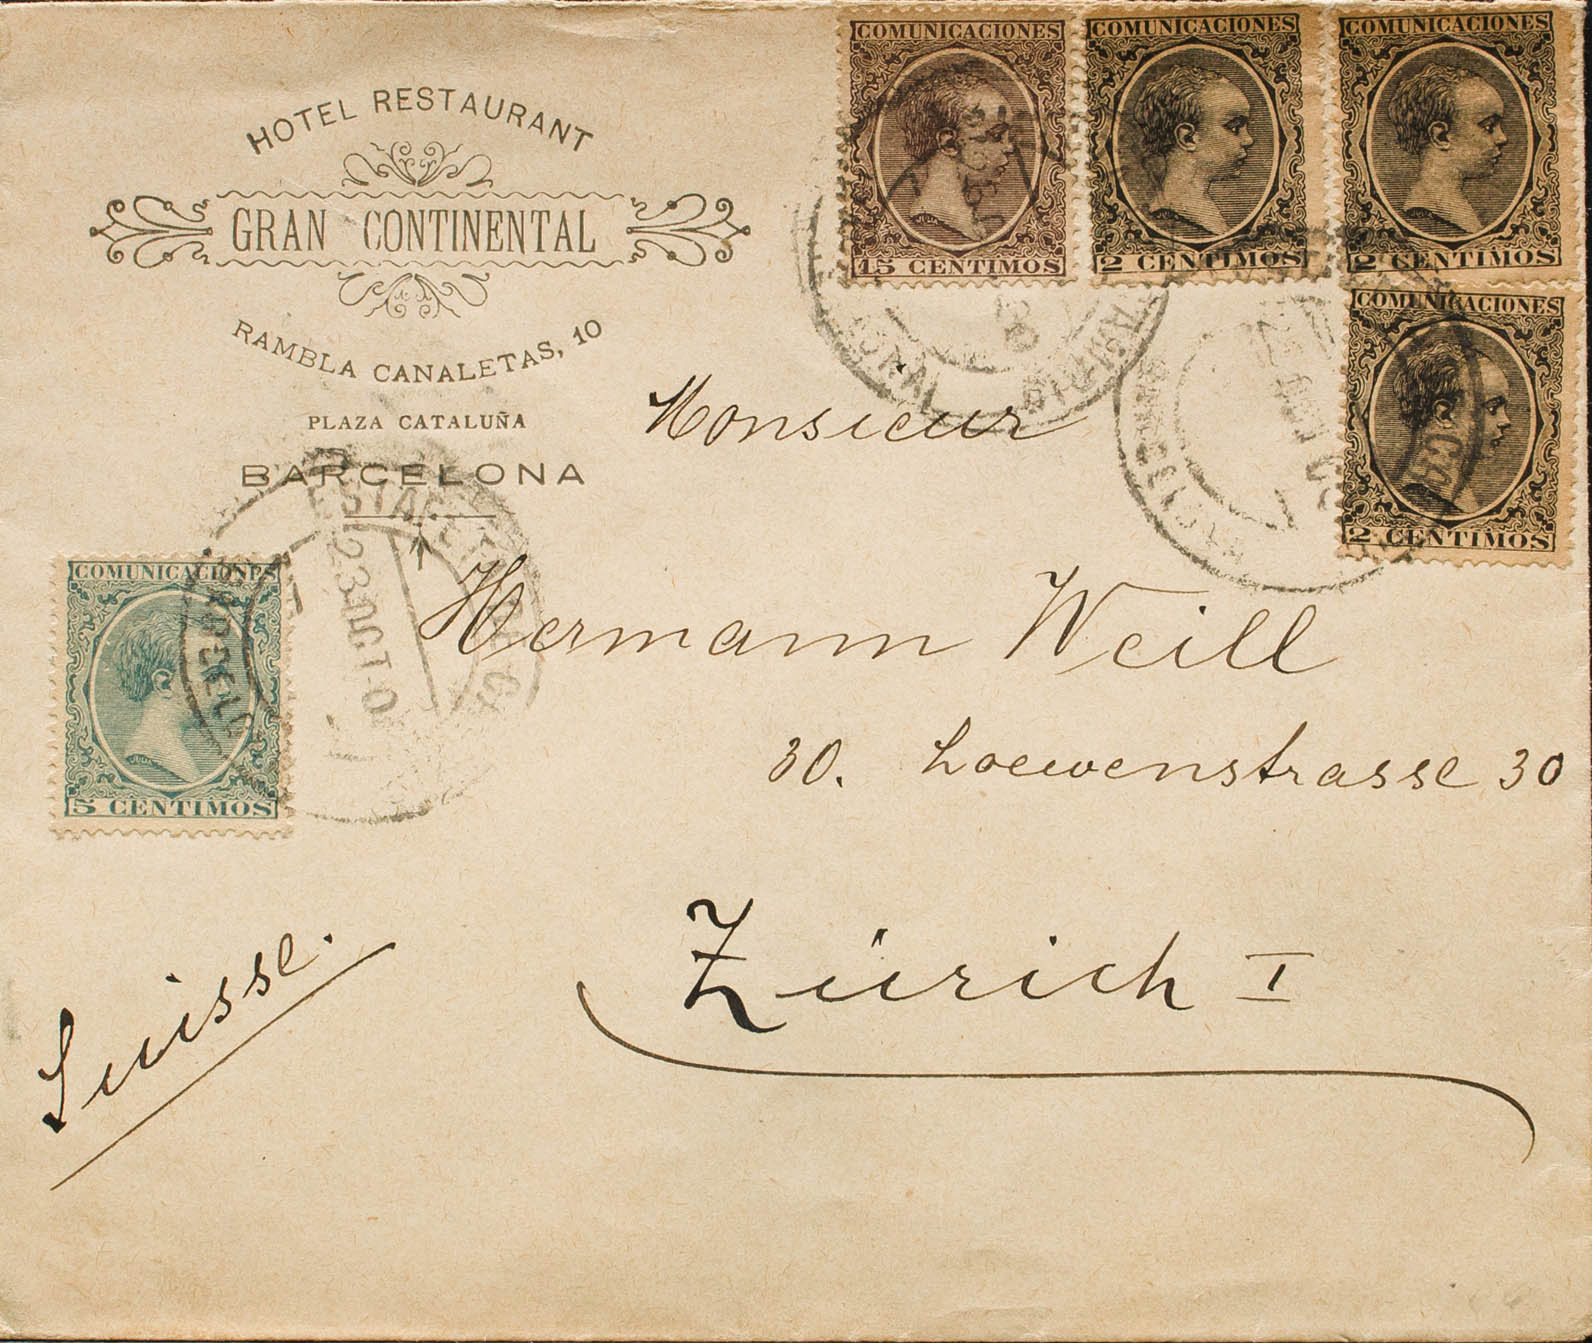 HOTEL RESTAURANT
GRAN CONTINENTAL
RAMBLA CANALETAS, 10
PLAZA CATALUÑA
BARCELONA
COMUNICACIONES
15 CENTIMOS
COMUNICACIONES
2 CENTIMOS
COMUNICACIONES
2 CENTIMOS
COMUNICACIONES
2 CENTIMOS
Monsieur
23 OCT
COMUNICACIONES
5 CENTIMOS
Hermann Weill
30. Loewenstrasse 30
Zürich I
Suisse.